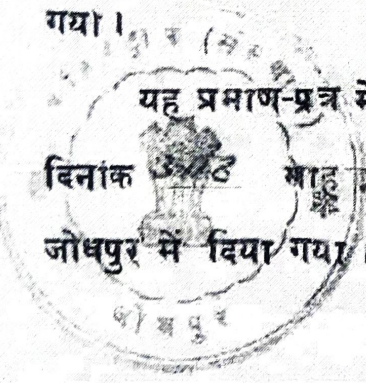 गया।
यह प्रमाण-प्रत्र मे
दिनांक माह
जोधपुर में दिया गया।
जोधपुर